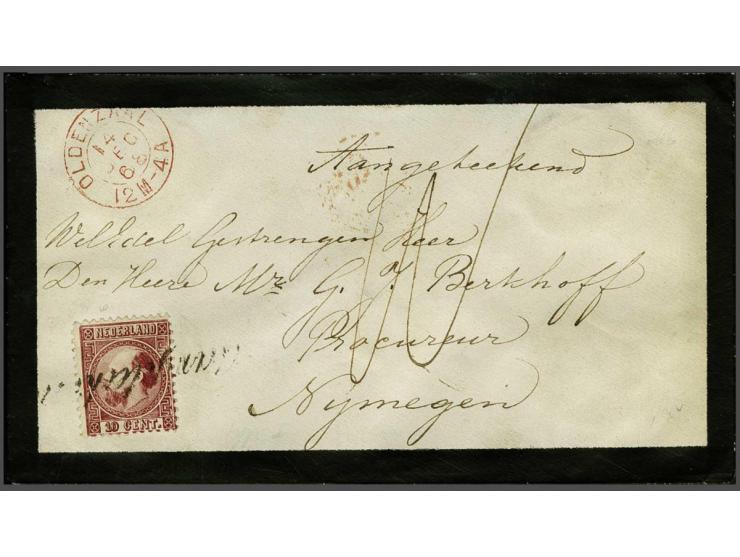 OLDENZAAL
14
DEC
68
12M-4A
Aangeteekend
Weledel Gestrengen Heer
Den Heere Mr. G. J. Berkhoff
Procureur
Nijmegen
NEDERLAND
10 CENT.